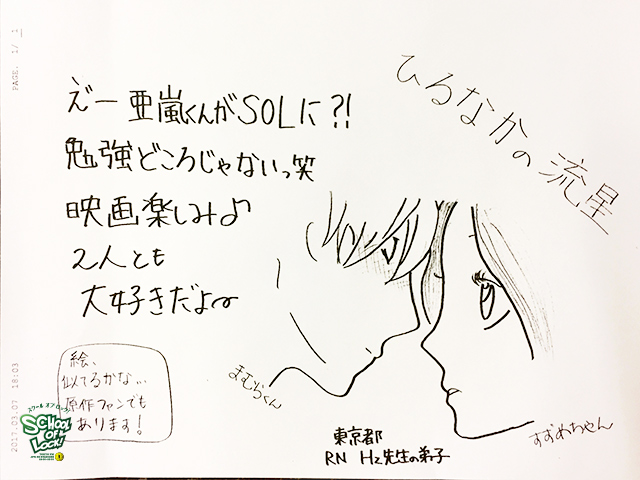 PAGE. 1/ 1
ひるなかの流星
えー亜嵐くんがSOLに?!
勉強どころじゃないっ笑
映画楽しみ♪
2人とも
大好きだよ〜
まむらくん
すずめちゃん
絵、
似てるかな…
原作ファンでも
あります!
東京都
RN Hz先生の弟子
2017-03-07 18:03
スクール オブ ロック!
SCHOOL
OF
LOCK!